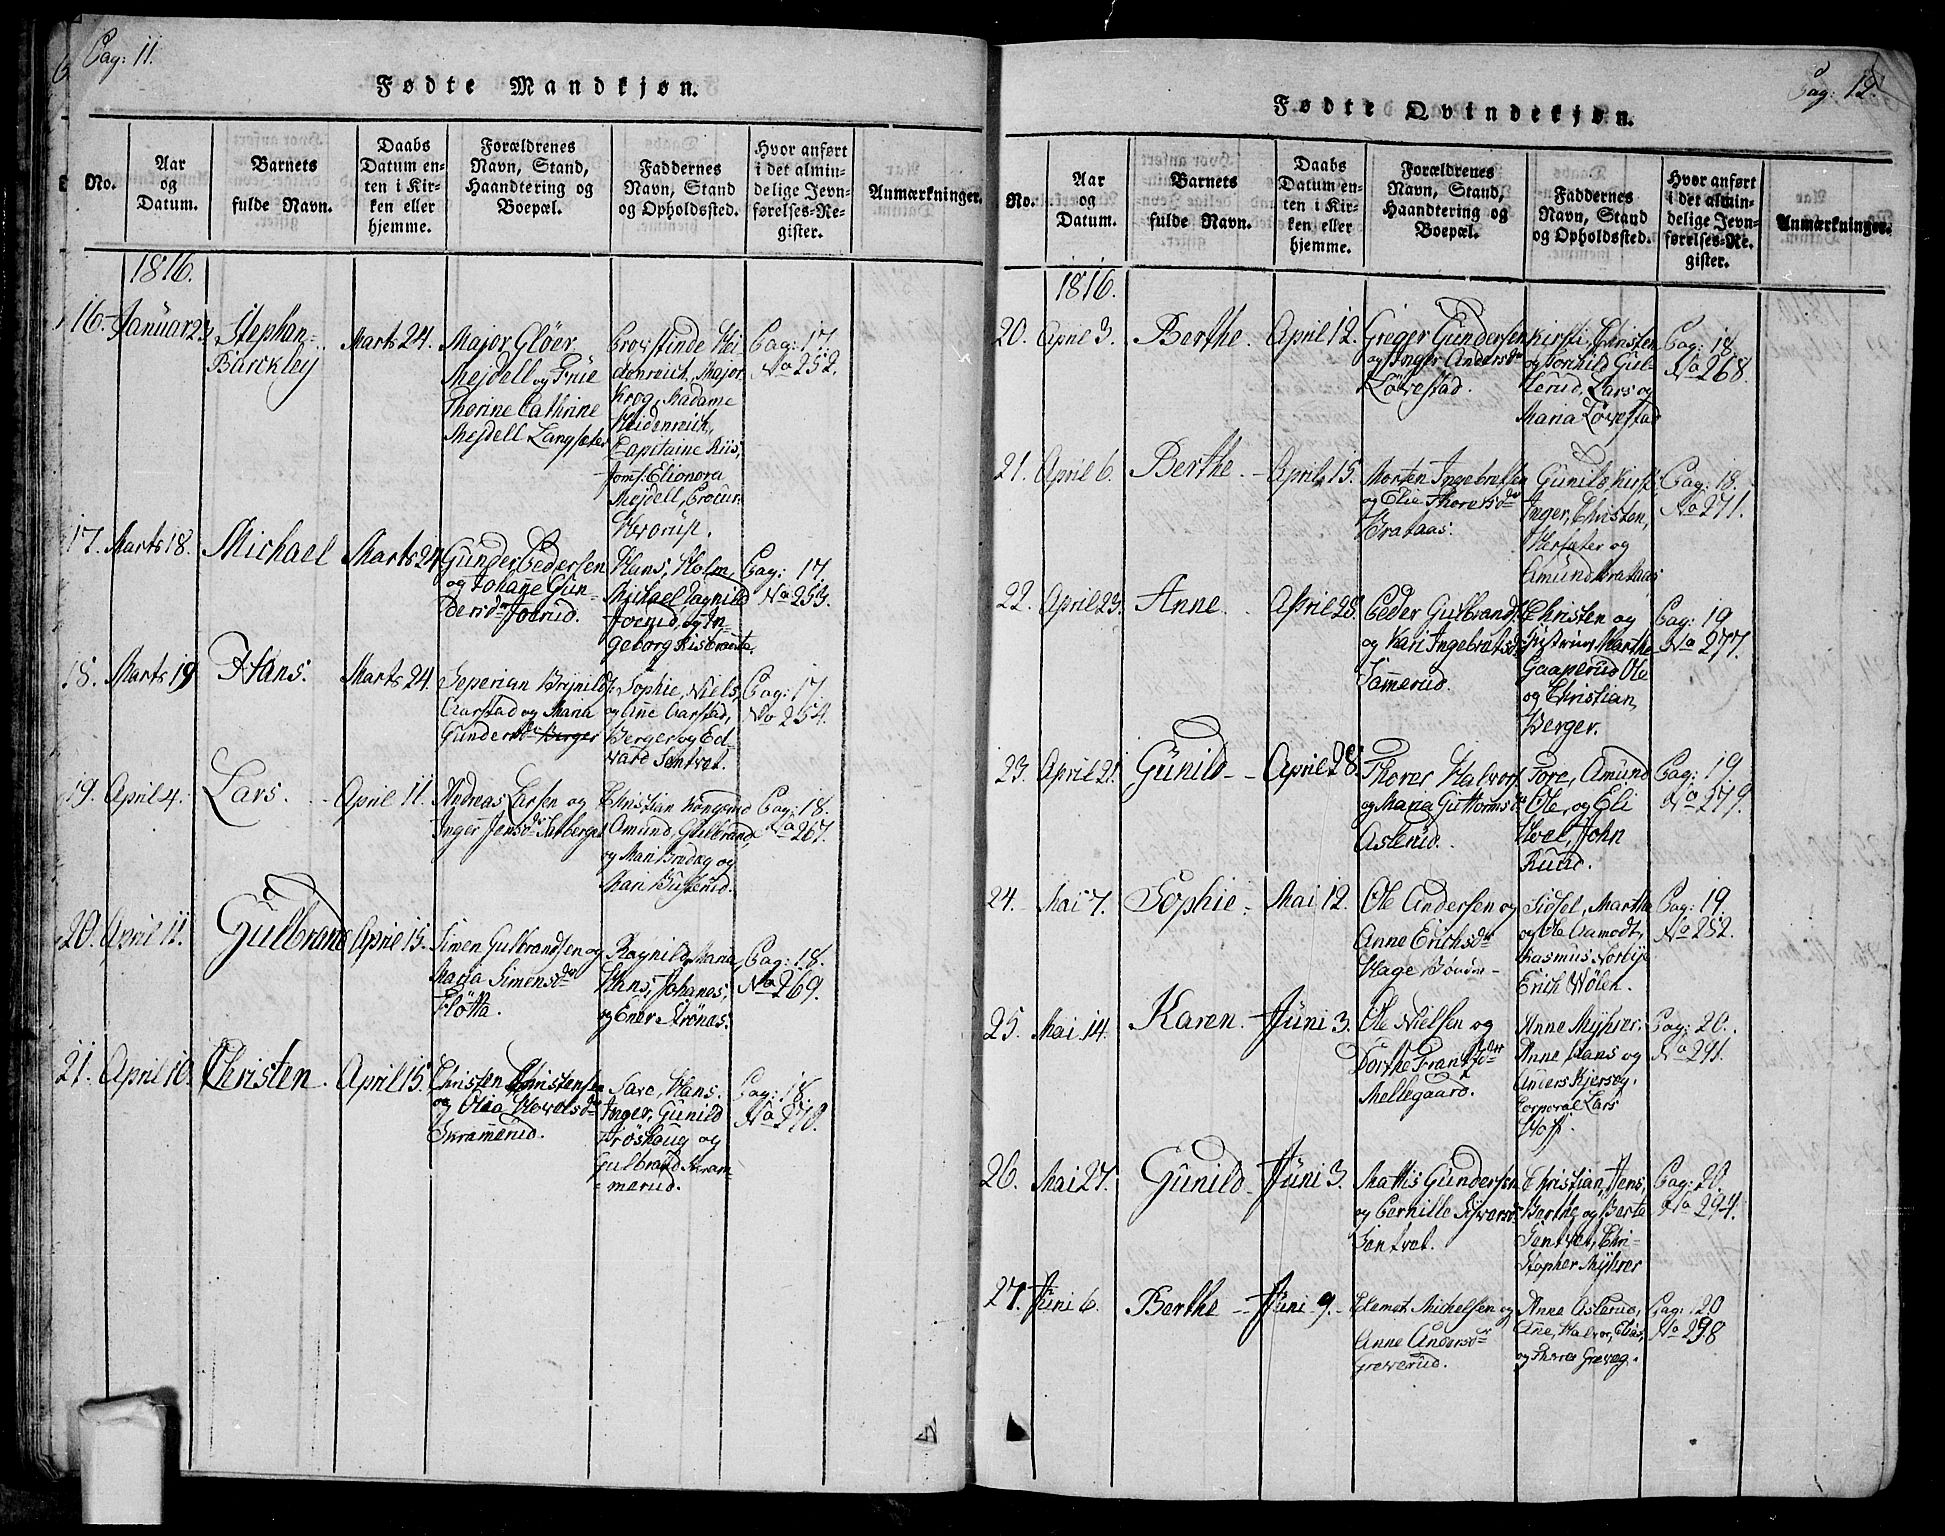 Pag: 11.
Fødte Mandkjøn.
No.
Aar
og
Datum.
Barnets
fulde Navn.
Daabs
Datum en-
ten i Kir-
ken eller
hjemme.
Forældrenes
Navn, Stand,
Haandtering og
Boepæl.
Faddernes
Navn, Stand
og Opholdssted.
Hvor anført
i det almin-
delige Jevn-
førelses-Re-
gister.
Anmærkninger.
1816.
16. Januar 23.
Stephan
Barckley
Marts 24.
Major Gløer
Mejdell og Frue
Therine Cathrine
Mejdell Langsæter
Provstinde Hei
denreich, Major
Krog, Madame
Heidenreich,
Capitaine Riis,
Jomf. Elionora
Mejdell, Procur.
Pag: 17.
No 252.
17. Marts 18.
Michael
Marts 24
Gunder Pedersen
og Johane Gun-
dersdr Joerud.
Hans, Holm,
Michael Ragnild
Joerud, og In-
geborg Risbraate.
Pag: 17.
No 253.
18. Marts 19
Hans.
Marts 24.
Seperian Brynilds.
Aarstad og Maria
Gundersdr Berger
Sophie, Niels,
og Ane Aarstad,
Berger og Ed-
vard Sentvet.
Pag: 17.
No 254.
19. April 4.
Lars.
April 11.
Andreas Larsen og
Inger Jensdr
Christian Kongsrud
Amund, Gulbrand,
og Mari Bredag og
Mari Busterud.
Pag: 18.
No 267.
20. April 11.
Gulbrand
April 15.
Simen Gulbrandsen og
Maria Simensdr
Fløtta.
Ragnild, Maria,
Hans, Johanes,
og Ener Strönæs.
Pag: 18.
No 269.
21. April 10.
Christen.
April 15.
Christen Christensen
og Olia Hovelsdr
Skramerud.
Sare, Hans,
Inger, Gunild
Frøshaug og
Gulbrand Skram-
merud.
Pag: 18.
No 270.
Pag: 12.
Fødte Qvindekjøn.
No.
Aar
og
Datum.
Barnets
fulde Navn.
Daabs
Datum en-
ten i Kir-
ken eller
hjemme.
Forældrenes
Navn, Stand,
Haandtering og
Boepæl.
Faddernes
Navn, Stand
og Opholdssted.
Hvor anført
i det almin-
delige Jevn-
førelses-Re-
gister.
Anmærkninger.
1816.
20. April 3.
Berthe.
April 12.
Greger Gundersen
og Inger Andersdr
Løvestad.
Kirsti, Christen
og Tonhild Gul-
lerud, Lars og
Maria Løvestad
Pag: 18
No 268.
21. April 6.
Berthe
April 15.
Morten Ingebretsen
og Elie Thoresdr
Brataas.
Gunild, Kirsti,
Inger, Christen,
Hersæter og
Amund Brataas
Pag: 18.
No 271.
22. April 23.
Anne.
April 28.
Peder Gulbrands.
og Kari Ingebretsdr
Tommerud.
Christen og
Marthe
Gaaperud Ole
og Christian,
Berger.
Pag: 19
No 277.
23. April 21.
Gunild
April 28.
Thorer Halvors.
og Maria Guttormsdr
Aslerud.
Tore, Amund
Ole, og Eli
Hoel, John
Ruud.
Pag: 19.
No 279.
24. Mai 7.
Sophie
Mai 12.
Ole Andersen og
Anne Erichsdr
Hage
Sidsel, Marthe
og Ole Aamodt,
Rasmus Norbye
Erich Wølen.
Pag: 19.
No 252.
25. Mai 14.
Karen.
Juni 3.
Ole Nielsen og
Dorthe Frantsdr
Mellegaard.
Anne Myhrer,
Anne Hans og
Anders Kjersøg,
Corporal Lars
Hoff.
Pag: 20.
No 291.
26. Mai 27.
Gunild
Juni 3.
Mathis Gundersen
og Pernille Syversdr
Sentvet.
Christian, Jens,
Berthe og Berte
Sentvet, Chri-
stopher Myhrer
Pag: 20.
No 294.
27. Juni 6.
Berthe
Juni 9.
Edemot Michelsen og
Anne Andersdr
Greverud.
Anne Aslerud,
Ane, Halvor, Elias,
og Thores Greveg.
Pag: 20
No 298